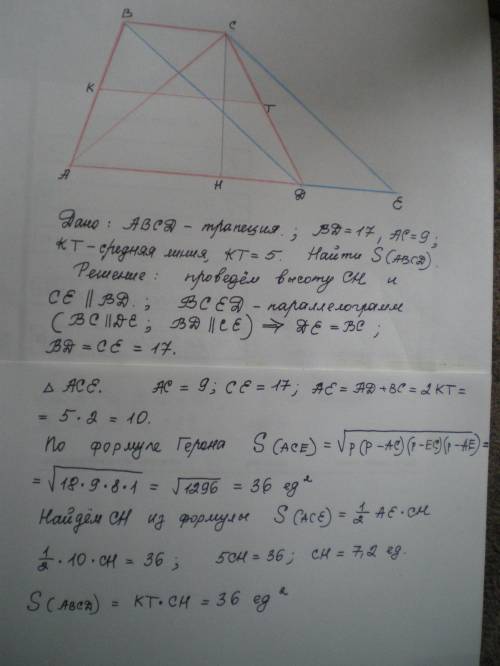 B C
K T
A H D E
Дано: ABCD - трапеция.; BD=17, AC=9;
KT - средняя линия, KT=5. Найти S(ABCD).
Решение: проведём высоту CH и
CE ∥ BD.; BCED - параллелограмм
(BC∥DE; BD∥CE) ⇒ DE=BC;
BD=CE=17.
△ ACE. AC=9; CE=17; AE=AD+BC=2KT=
=5·2=10.
По формуле Герона S(ACE)=√p(p-AC)(p-EC)(p-AE)=
=√18·9·8·1=√1296=36 ед²
Найдём CH из формулы S(ACE)=1/2 AE·CH
1/2·10·CH=36; 5CH=36; CH=7,2 ед.
S(ABCD)=KT·CH=36 ед²